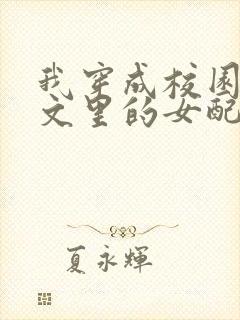 我穿成校园
文里的女配
夏永辉